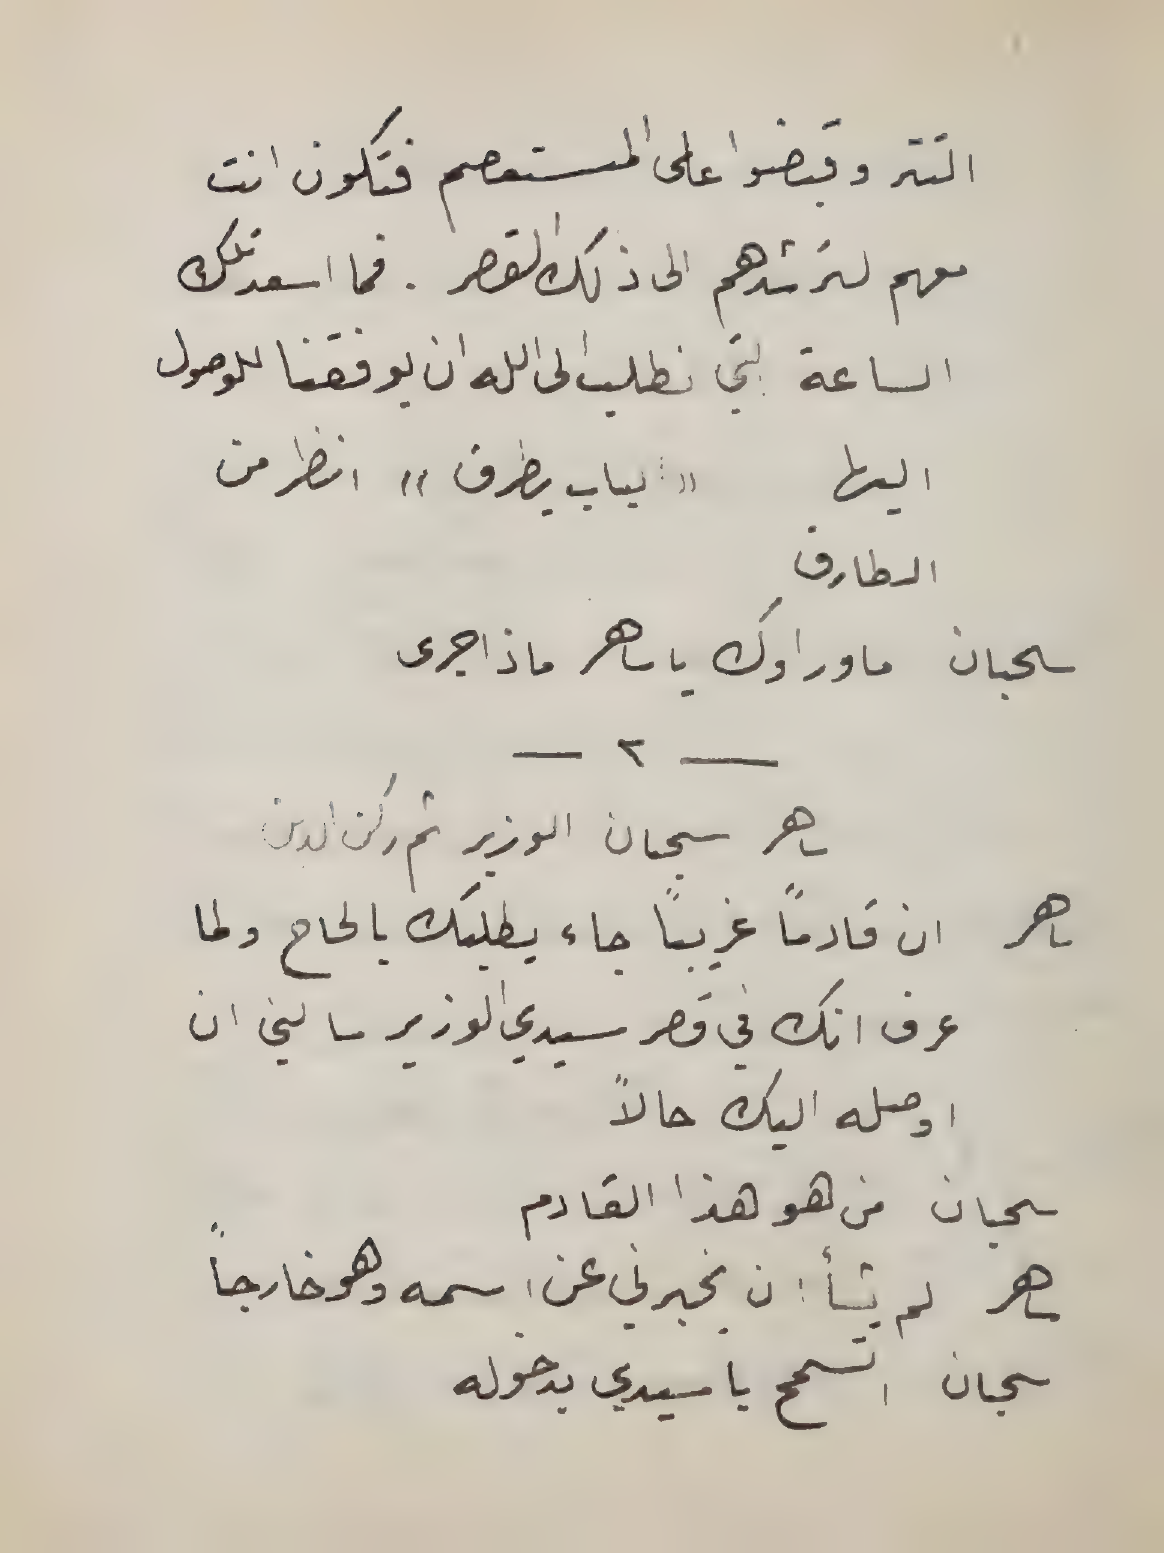 التتر وقبضوا على المستعصم فتكون انت
معهم لترشدهم الى ذلك القصر . فما اسعد تلك
الساعة التي نطلب الى الله ان يوفقنا للوصول
اليها « الباب يطرق » انظر من
الطارق
سحبان ماوراوك يا ساهر ماذا جرى
— ٢ —
ساهر سحبان الوزير ثم ركن الدين
ساهر ان قادمًا غريبًا جاء يطلبك بالحاح ولما
عرف انك في قصر سيدي الوزير سالني ان
اوصله اليك حالاً
سحبان من هو هذا القادم
ساهر لم يشأ ان يخبرني عن اسمه وهو خارجاً
سحبان اتسمح يا سيدي بدخوله